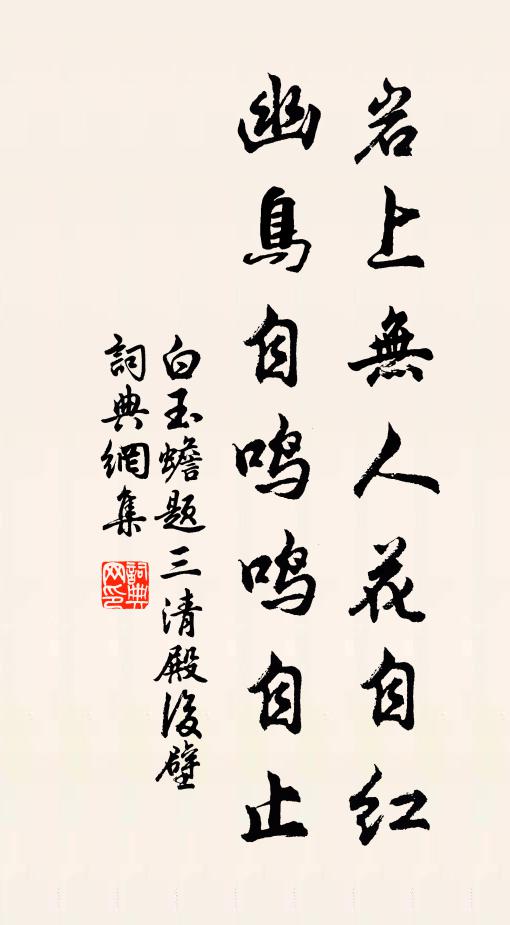 岩上無人花自红
幽鳥自鸣鸣自止
白玉蟾题三清殿後壁
詞典網集
詞典网印